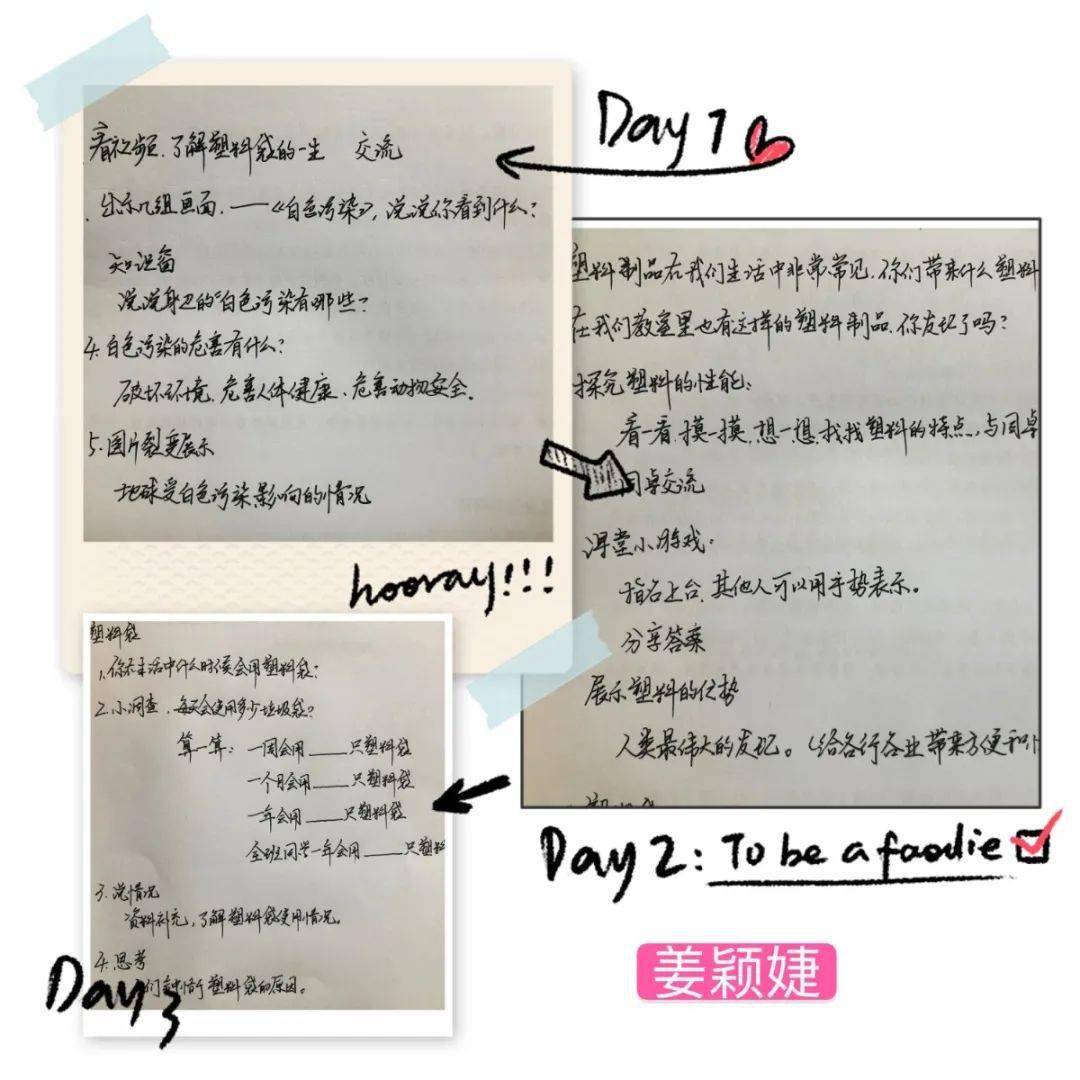 Day 1
看视频.了解塑料袋的一生 交流
出示几组画面.——《白色污染》,说说你看到什么?
知识窗
说说身边的"白色污染有哪些?
4.白色污染的危害有什么?
破坏环境、危害人体健康、危害动物安全.
5.图片裂变展示
地球受白色污染影响的情况
hooray!!!
塑料制品在我们生活中非常常见.你们带来什么塑料
在我们教室里也有这样的塑料制品.你发现了吗?
探究塑料的性能:
看一看.摸一摸.想一想.找找塑料的特点,与同桌
同桌交流
课堂小游戏:
指名上台.其他人可以用手势表示。
分享答案
展示塑料的优势
人类最伟大的发现。(给各行各业带来方便和
Day 2: To be a foodie
塑料袋
1.你在生活中什么时候会用塑料袋?
2.小调查.每天会使用多少垃圾袋?
算一算: 一周会用____只塑料袋
一个月会用____只塑料袋
一年会用____只塑料袋
全班同学一年会用____只塑料
3.说情况
资料补充,了解塑料袋使用情况。
4.思考
们 塑料袋的原因。
Day 3
姜颖婕